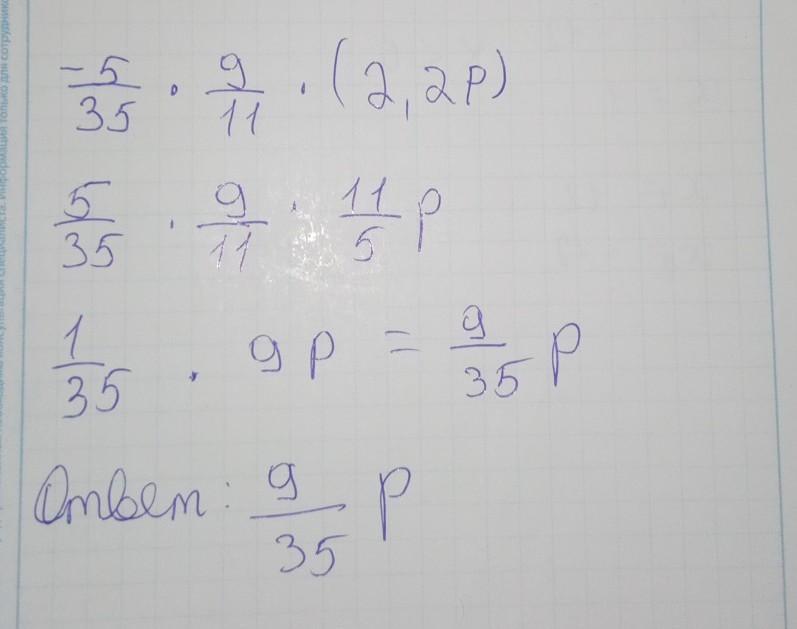 -5/35 · 9/11 · (2,2p)
5/35 · 9/11 · 11/5 p
1/35 · 9p = 9/35 p
Ответ: 9/35 p